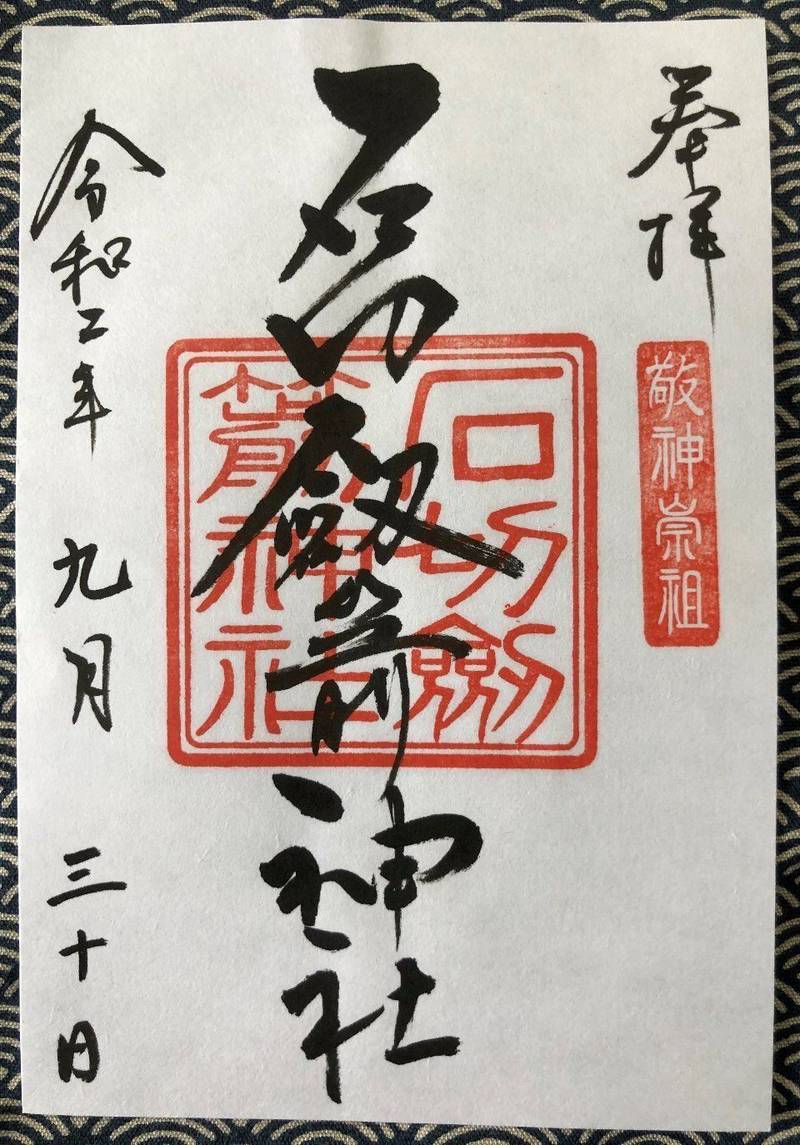 奉拝
敬神崇祖
石切劔箭神社
石切劔
箭神社
令和二年 九月 三十日